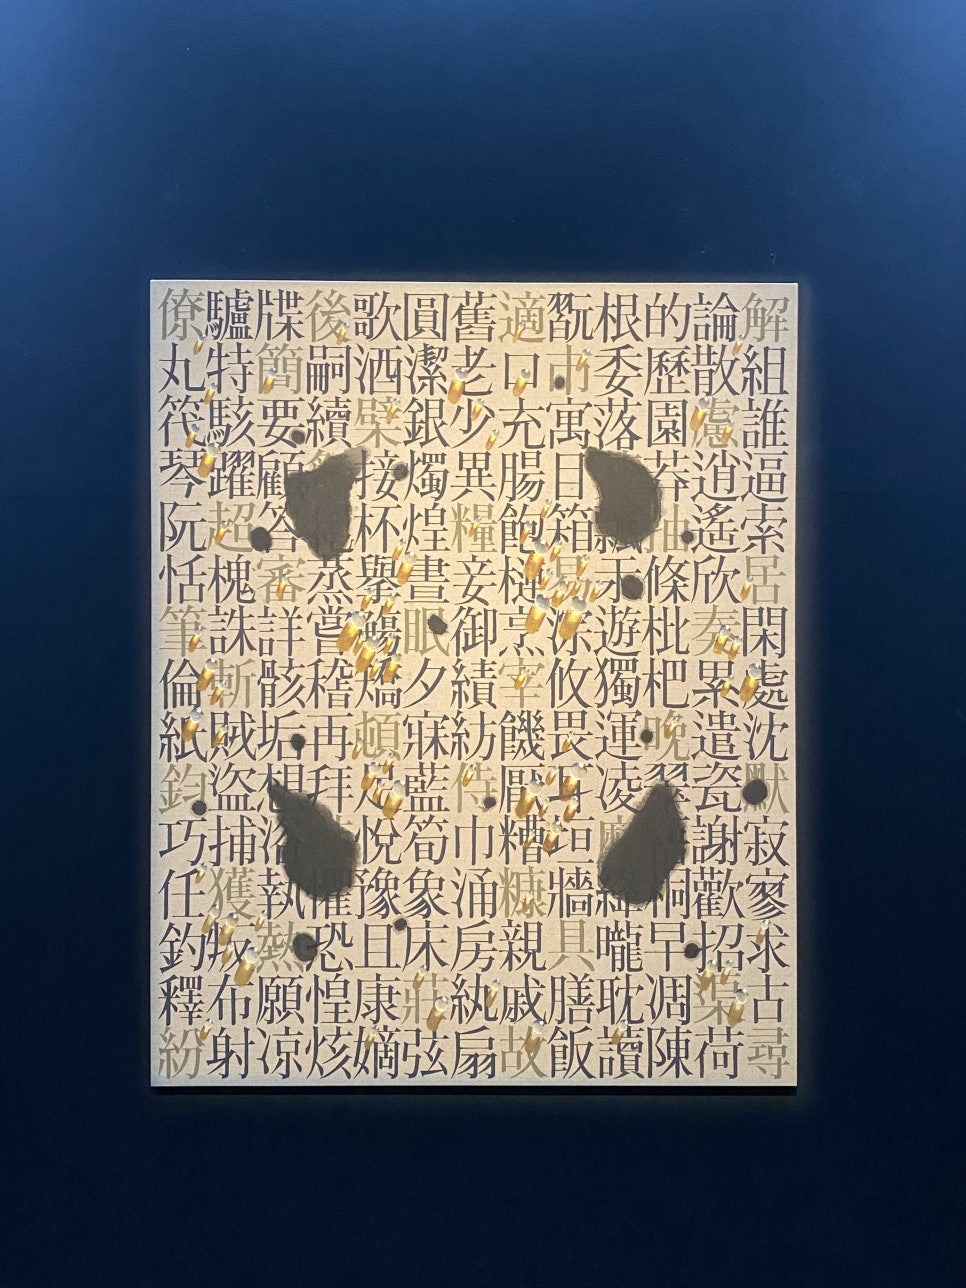 解組誰逼索居閑處沈默寂寥求古尋
論散慮逍遙欣奏累遣瓷謝歡招渠荷
的歷園莽抽條枇杷晚翠梧桐早凋陳
根委落飄遊獨運凌摩絳曨耽讀
翫市寓目箱易攸畏垣牆具膳飯
適口充腸飽烹宰饑厭糟糠親戚故
舊老少異糧妾御績紡侍巾涌房紈扇
圓潔銀燭煌晝眠夕寐藍筍象床莊弦
歌洒接杯舉觴矯頓足悅豫且康嫡
後嗣續蒸嘗稽再拜懼恐惶炫
牒簡要顧答審詳骸垢想浴執熱願涼
驢特駭躍超槐誅斬賊盜捕獲叛布射
僚丸筏琴阮恬筆倫紙鈞巧任釣釋紛